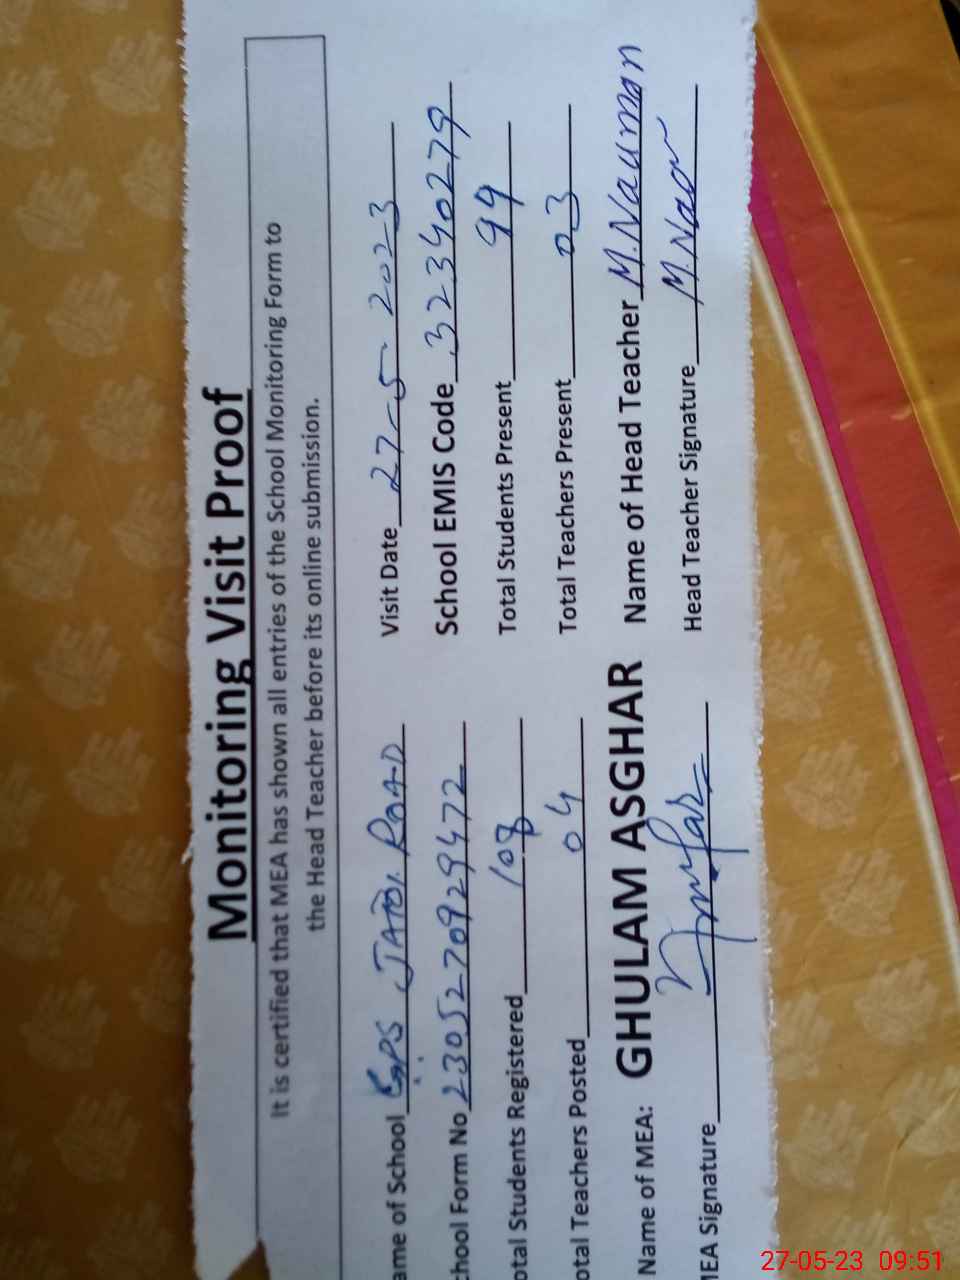 Monitoring Visit Proof
It is certified that MEA has shown all entries of the School Monitoring Form to
the Head Teacher before its online submission.
ame of School GPS JATOI ROAD Visit Date 27-5-2023
chool Form No 2305270929472 School EMIS Code 32340279
otal Students Registered 108 Total Students Present 99
otal Teachers Posted 04 Total Teachers Present 03
Name of MEA: GHULAM ASGHAR Name of Head Teacher M.Nauman
MEA Signature Head Teacher Signature M.Nao
27-05-23 09:51